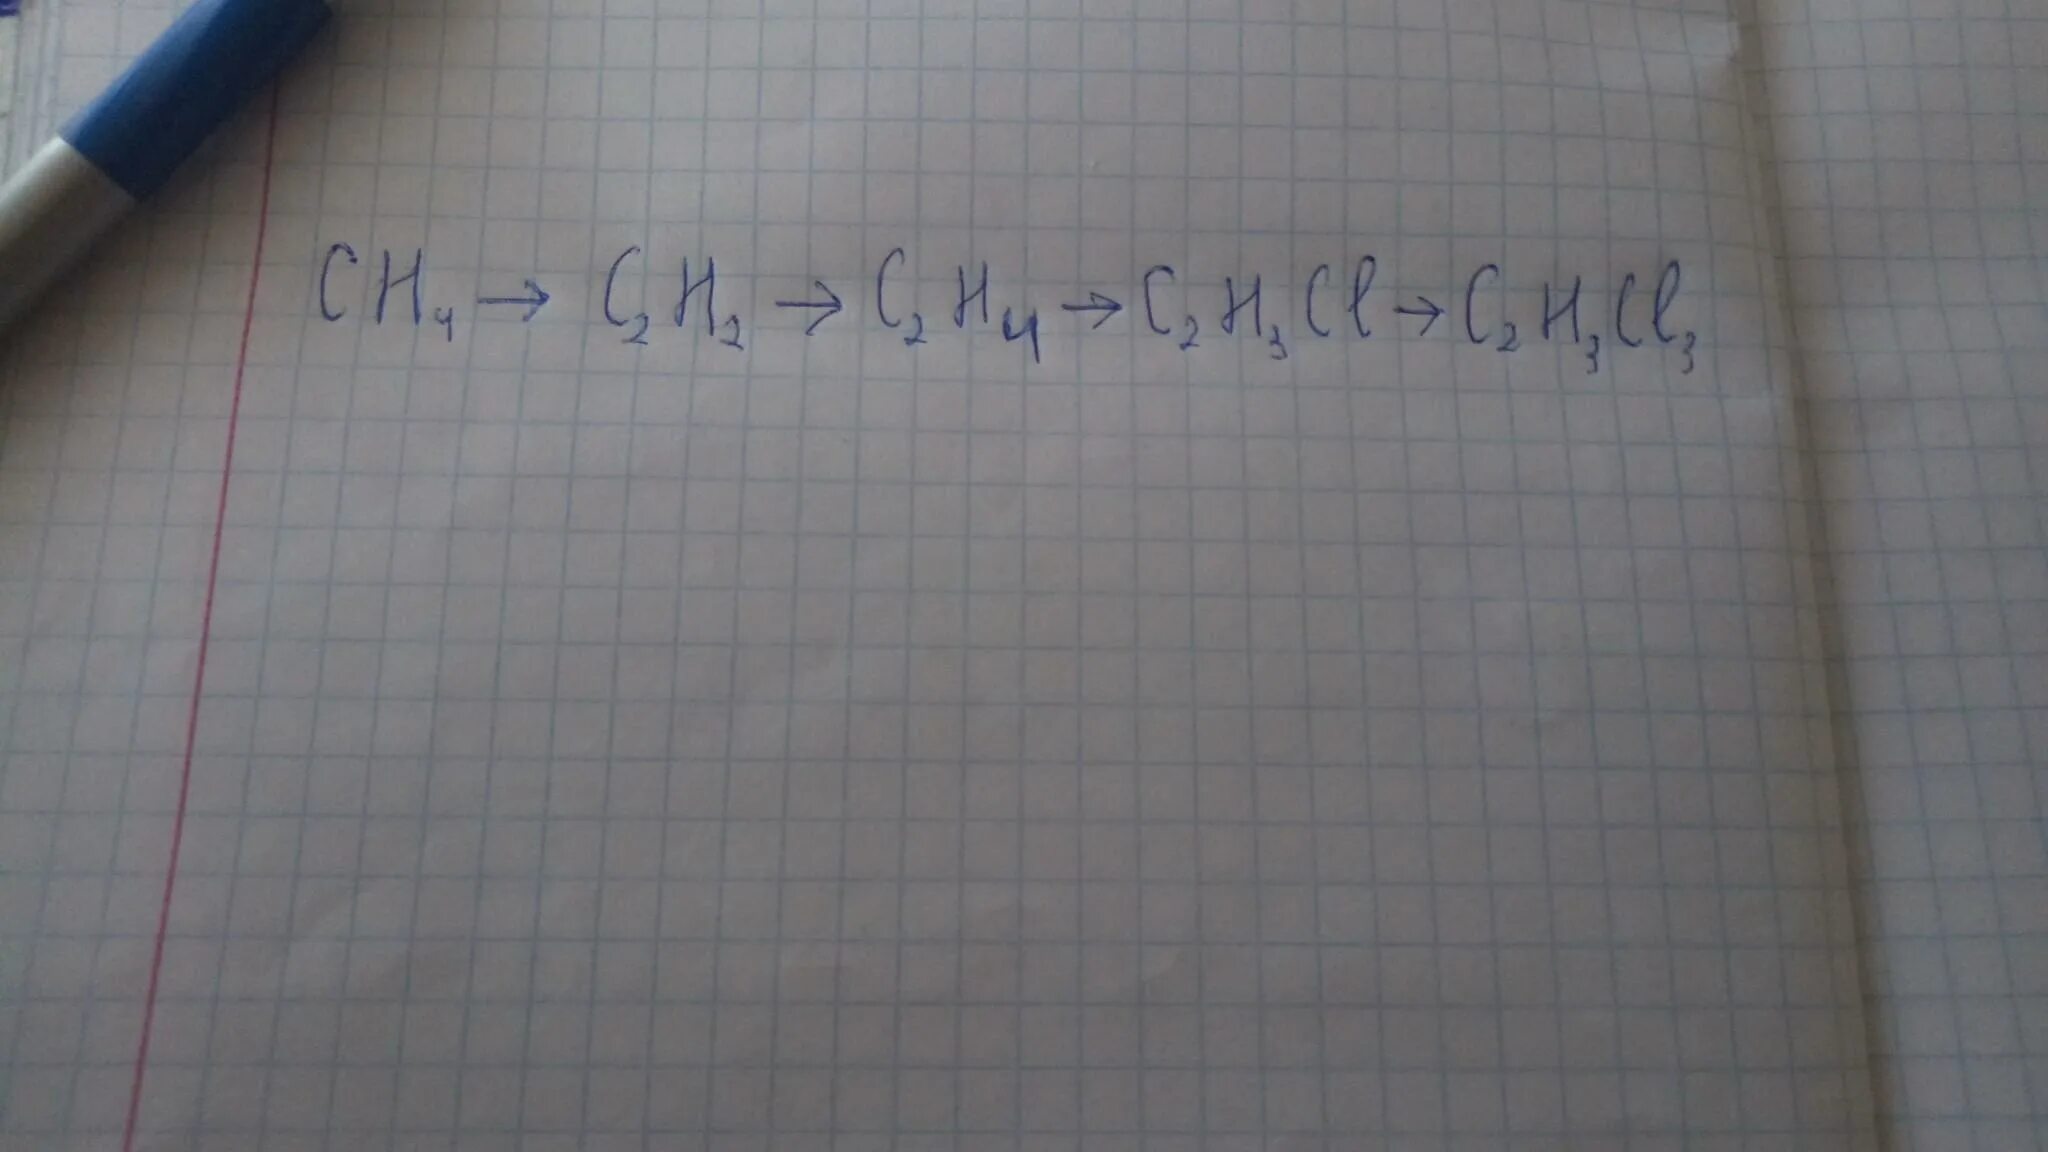 CH₄ → C₂H₂ → C₂H₄ → C₂H₃Cl → C₂H₃Cl₃